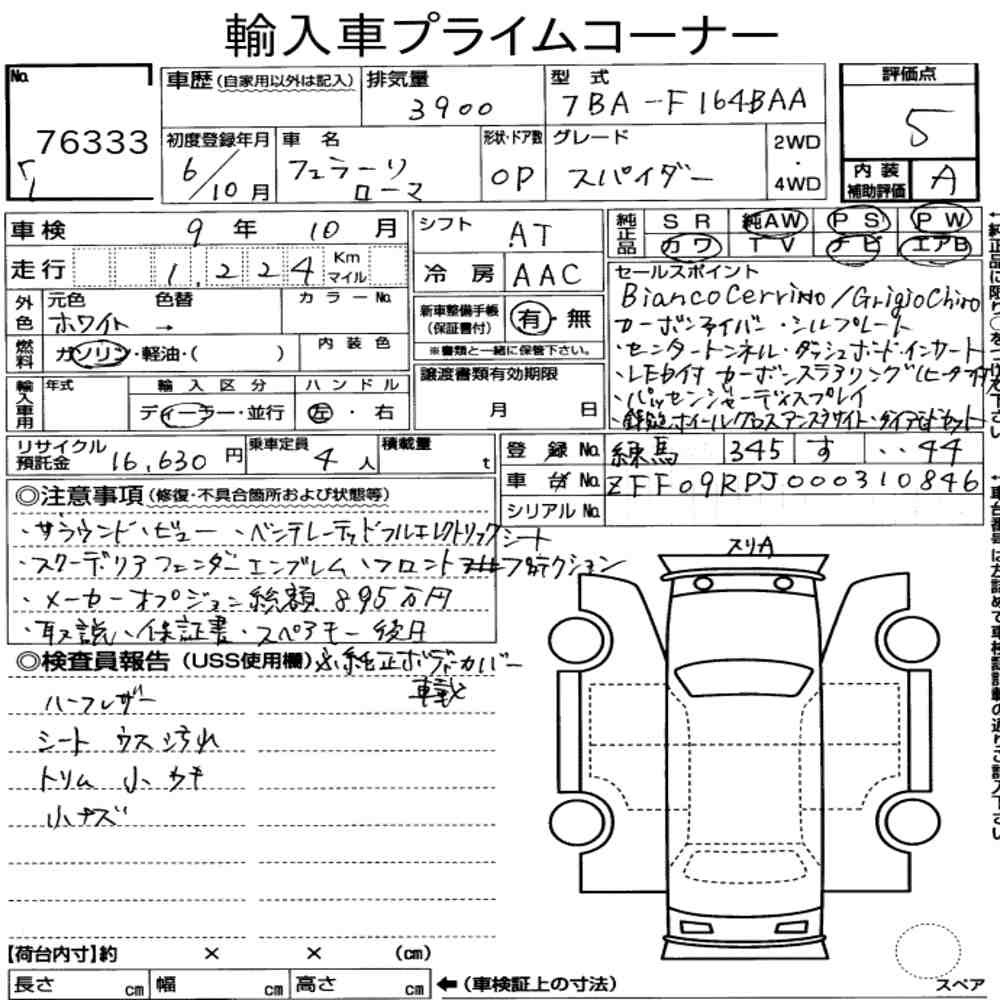 輸入車プライムコーナー
No. 76333
車歴(自家用以外は記入)
排気量 3900
型式 7BA-F164BAA
評価点 5
初度登録年月 6/10月
車名 フェラーリ ローマ
形状・ドア数 OP
グレード スパイダー
2WD・4WD
内装補助評価 A
車検 9年 10月
シフト AT
純正品 SR 純AW PS PW
カワ TV ナビ エアB
走行 1,224 Km マイル
冷房 AAC
外色 元色 ホワイト 色替 → カラーNo.
新車整備手帳(保証書付) 有・無
※書類と一緒に保管下さい。
燃料 ガソリン・軽油・( )
内装色
輸入車用 年式 輸入区分 ディーラー・並行 ハンドル 左・右
譲渡書類有効期限 月 日
セールスポイント
BiancoCerrino/GrigioChiro
カーボンファイバー・シルプレート
・センタートンネル・ダッシュボードインサート
・LED付 カーボンステアリング(ヒーター付
・パッセンジャーディスプレイ
・鍛造ホイールグロスアンスラサイト・ダイアモンドカット
リサイクル預託金 16,630円
乗車定員 4人
積載量 t
登録No. 練馬 345 す ‥44
車台No. ZFF09RPJ000310846
シリアルNo.
◎注意事項(修復・不具合箇所および状態等)
・サラウンド・ビュー ・ベンチレーテッドフルエレクトリックシート
・スクーデリアフェンダーエンブレム ・フロント プロテクション
・メーカーオプション総額 895万円
・取説、保証書・スペアキー後日
◎検査員報告(USS使用欄) ※純正ボディーカバー
車載
ハーフレザー
シート ウス汚れ
トリム 小キズ
小キズ
スリA
【荷台内寸】約 × × (cm)
長さ cm 幅 cm 高さ cm ←(車検証上の寸法)
スペア